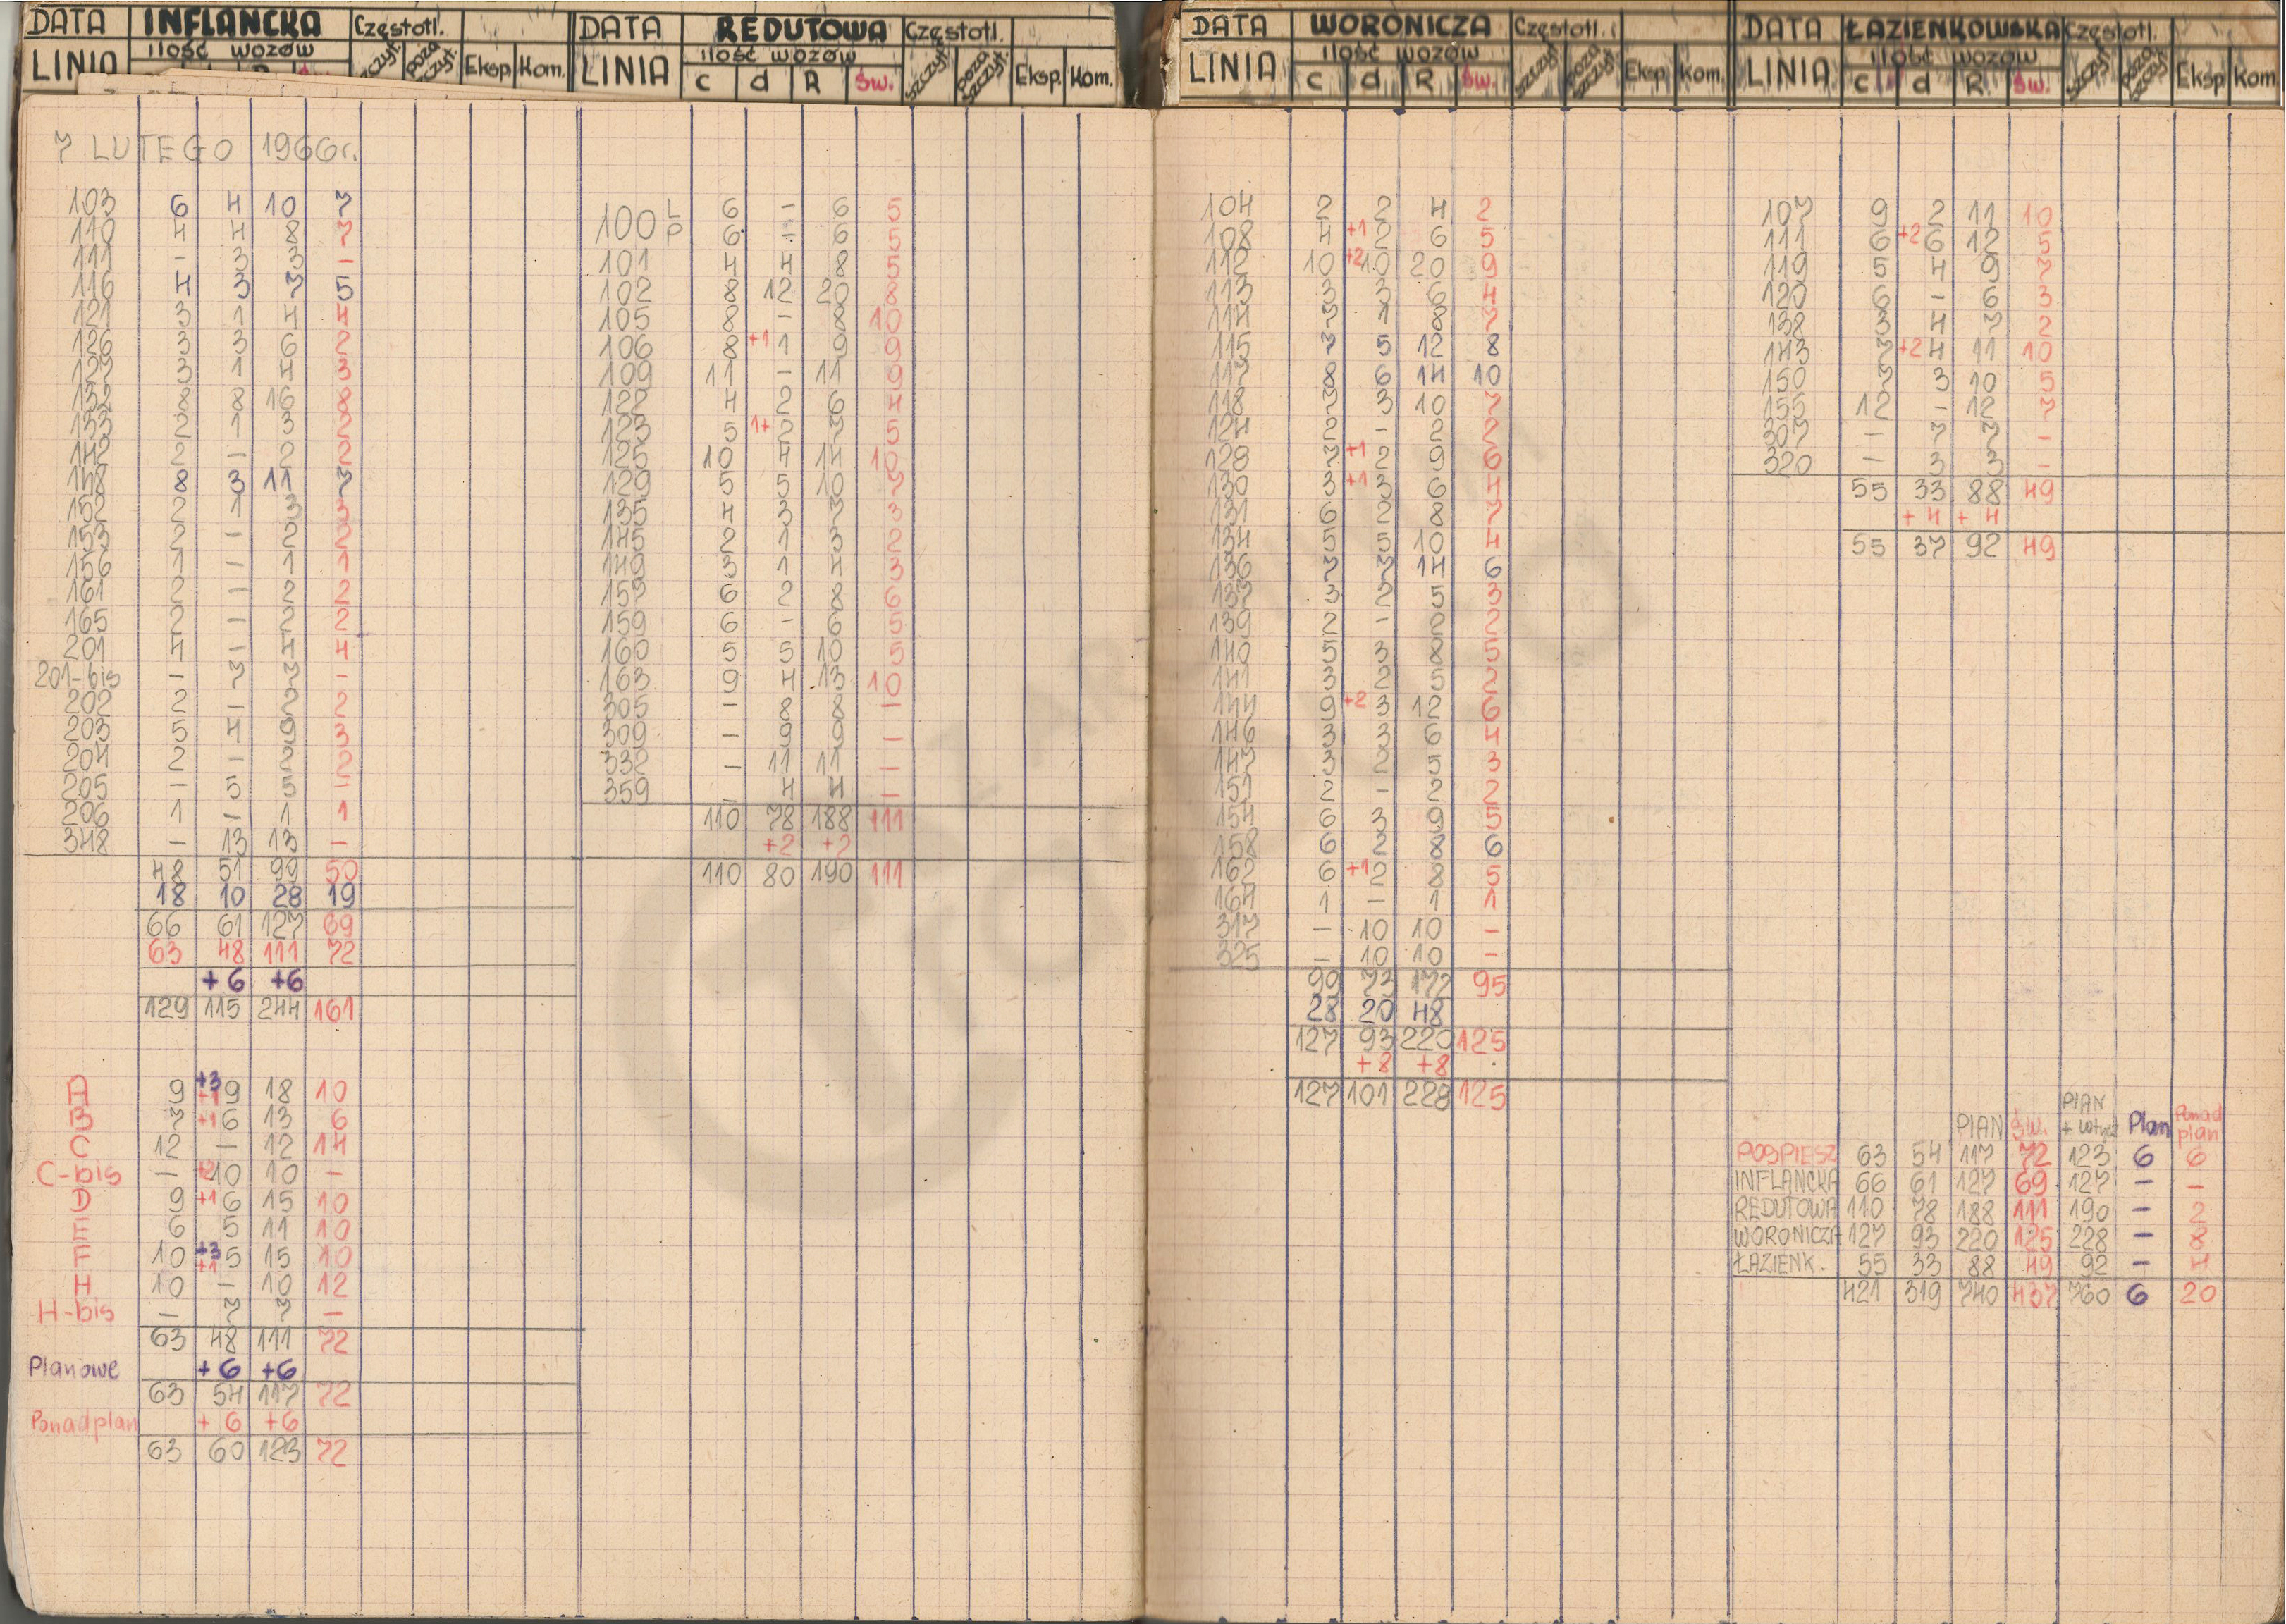 DATA INFLANCKA Częstotl.
LINIA ilość wozów szczyt. poza szczyt. Eksp. Kom.
7 LUTEGO 1966r.
103 6 4 10 7
110 4 4 8 7
111 - 3 3 -
116 4 3 7 5
121 3 1 4 4
126 3 3 6 2
127 3 1 4 3
132 8 8 16 8
133 2 1 3 2
142 2 - 2 2
148 8 3 11 7
152 2 1 3 3
153 2 - 2 2
156 1 - 1 1
161 2 - 2 2
165 2 - 2 2
201 4 - 4 4
201-bis - 7 7 -
202 2 - 2 2
203 5 4 9 3
204 2 - 2 2
205 - 5 5 -
206 1 - 1 1
348 - 13 13 -
48 51 99 50
18 10 28 19
66 61 127 69
63 48 111 72
+6 +6
129 115 244 161
A 9 +3 +1 9 18 10
B 7 +1 6 13 6
C 12 - 12 14
C-bis - +2 10 10 -
D 9 +1 6 15 10
E 6 5 11 10
F 10 +3 +1 5 15 10
H 10 - 10 12
H-bis - 7 7 -
63 48 111 72
Planowe +6 +6
63 54 117 72
Ponadplan +6 +6
63 60 123 72
DATA REDUTOWA Częstotl.
LINIA ilość wozów c d R Św. szczyt. poza szczyt. Eksp. Kom.
100 L 6 - 6 5
P 6 - 6 5
101 4 4 8 5
102 8 12 20 8
105 8 - 8 10
106 8 +1 1 9 9
109 11 - 11 9
122 4 2 6 4
123 5 1+ 2 7 5
125 10 4 14 10
129 5 5 10 7
135 4 3 7 3
145 2 1 3 2
149 3 1 4 3
157 6 2 8 6
159 6 - 6 5
160 5 5 10 5
163 9 4 13 10
305 - 8 8 -
309 - 9 9 -
332 - 11 11 -
359 - 4 4 -
110 78 188 111
+2 +2
110 80 190 111
DATA WORONICZA Częstotl.
LINIA ilość wozów c d R Św. szczyt. poza szczyt. Eksp. Kom.
104 2 2 4 2
108 4 +1 2 6 5
112 10 +2 10 20 9
113 3 3 6 4
114 7 1 8 7
115 7 5 12 8
117 8 6 14 10
118 7 3 10 7
124 2 - 2 2
128 7 +1 2 9 6
130 3 +1 3 6 4
131 6 2 8 7
134 5 5 10 4
136 7 7 14 6
137 3 2 5 3
139 2 - 2 2
140 5 3 8 5
141 3 2 5 2
144 9 +2 3 12 6
146 3 3 6 4
147 3 2 5 3
151 2 - 2 2
154 6 3 9 5
158 6 2 8 6
162 6 +1 2 8 5
164 1 - 1 1
317 - 10 10 -
325 - 10 10 -
99 73 172 95
28 20 48
127 93 220 125
+8 +8
127 101 228 125
DATA ŁAZIENKOWSKA Częstotl.
LINIA ilość wozów c d R Św. szczyt. poza szczyt. Eksp Kom
107 9 2 11 10
111 6 +2 6 12 5
119 5 4 9 7
120 6 - 6 3
138 3 4 7 2
143 7 +2 4 11 10
150 7 3 10 5
155 12 - 12 7
307 - 7 7 -
320 - 3 3 -
55 33 88 49
+4 +4
55 37 92 49
PLAN Św. PLAN + Plan Ponad plan
POSPIESZ 63 54 117 72 123 6 6
INFLANCKA 66 61 127 69 127 - -
REDUTOWA 110 78 188 111 190 - 2
WORONICZA 127 93 220 125 228 - 8
ŁAZIENK. 55 33 88 49 92 - 4
421 319 740 437 760 6 20